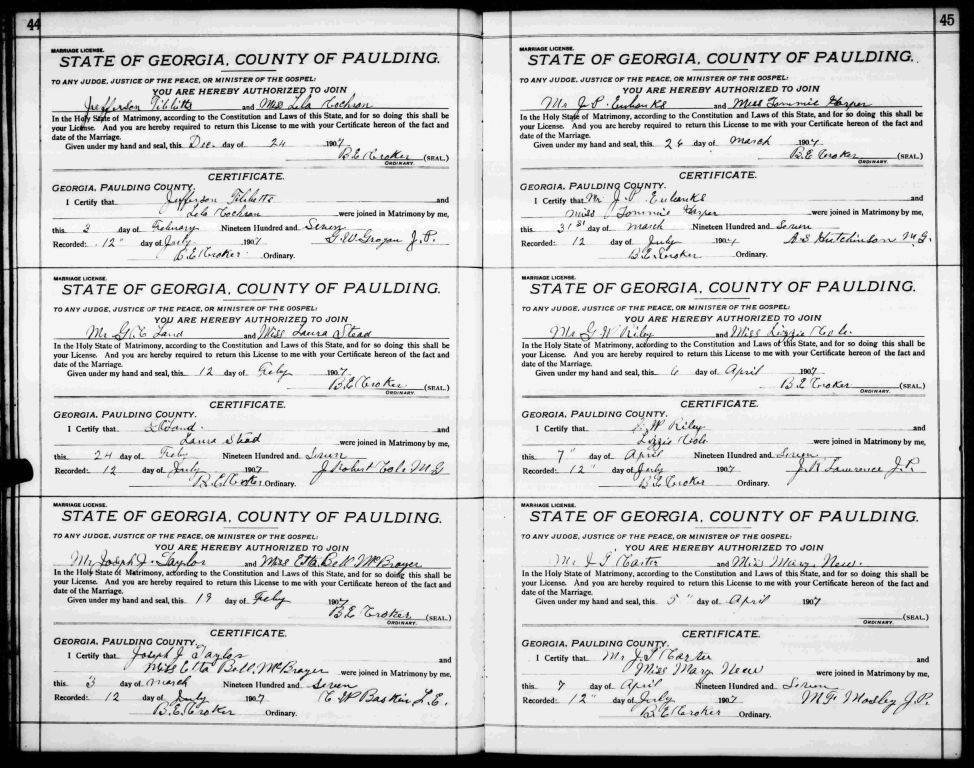 44
MARRIAGE LICENSE.
STATE OF GEORGIA, COUNTY OF PAULDING.
TO ANY JUDGE, JUSTICE OF THE PEACE, OR MINISTER OF THE GOSPEL:
YOU ARE HEREBY AUTHORIZED TO JOIN
Jefferson Tibbitts and Miss Lela Cochran
In the Holy State of Matrimony, according to the Constitution and Laws of this State, and for so doing this shall be
your License. And you are hereby required to return this License to me with your Certificate hereon of the fact and
date of the Marriage.
Given under my hand and seal, this Dec. day of 24 1907
B.E. Croker (SEAL.)
ORDINARY.
CERTIFICATE.
GEORGIA, PAULDING COUNTY.
I Certify that Jefferson Tibbitts and
Lela Cochran were joined in Matrimony by me,
this 3 day of February Nineteen Hundred and Seven
Recorded: 12" day of July 1907 G.W. Grogan J.P.
B.E. Croker Ordinary.
MARRIAGE LICENSE.
STATE OF GEORGIA, COUNTY OF PAULDING.
TO ANY JUDGE, JUSTICE OF THE PEACE, OR MINISTER OF THE GOSPEL:
YOU ARE HEREBY AUTHORIZED TO JOIN
Mr. G. C. Land and Miss Laura Stead
In the Holy State of Matrimony, according to the Constitution and Laws of this State, and for so doing this shall be
your License. And you are hereby required to return this License to me with your Certificate hereon of the fact and
date of the Marriage.
Given under my hand and seal, this 12 day of Feby 1907
B.E. Croker (SEAL.)
ORDINARY.
CERTIFICATE.
GEORGIA, PAULDING COUNTY.
I Certify that Land and
Laura Stead were joined in Matrimony by me,
this 24 day of Feby Nineteen Hundred and Seven
Recorded: 12 day of July 1907 J. Robert Cole M.G
B.E. Croker Ordinary.
MARRIAGE LICENSE.
STATE OF GEORGIA, COUNTY OF PAULDING.
TO ANY JUDGE, JUSTICE OF THE PEACE, OR MINISTER OF THE GOSPEL:
YOU ARE HEREBY AUTHORIZED TO JOIN
Mr Joseph J. Taylor and Miss Etta Bell McBrayer
In the Holy State of Matrimony, according to the Constitution and Laws of this State, and for so doing this shall be
your License. And you are hereby required to return this License to me with your Certificate hereon of the fact and
date of the Marriage.
Given under my hand and seal, this 19 day of Feby 1907
B.E. Croker (SEAL.)
ORDINARY.
CERTIFICATE.
GEORGIA, PAULDING COUNTY.
I Certify that Joseph J Taylor and
Miss Etta Bell McBrayer were joined in Matrimony by me,
this 3 day of March Nineteen Hundred and Seven
Recorded: 12 day of July 1907 C W Baskin L.E.
B.E. Croker Ordinary.
45
MARRIAGE LICENSE.
STATE OF GEORGIA, COUNTY OF PAULDING.
TO ANY JUDGE, JUSTICE OF THE PEACE, OR MINISTER OF THE GOSPEL:
YOU ARE HEREBY AUTHORIZED TO JOIN
Mr J. P. Eubanks and Miss Tommie Harper
In the Holy State of Matrimony, according to the Constitution and Laws of this State, and for so doing this shall be
your License. And you are hereby required to return this License to me with your Certificate hereon of the fact and
date of the Marriage.
Given under my hand and seal, this 26 day of March 1907
B.E. Croker (SEAL.)
ORDINARY.
CERTIFICATE.
GEORGIA, PAULDING COUNTY.
I Certify that Mr J. P. Eubanks and
Miss Tommie Harper were joined in Matrimony by me,
this 31st day of March Nineteen Hundred and Seven
Recorded: 12 day of July 1907 A S Hutchinson M.G.
B.E. Croker Ordinary.
MARRIAGE LICENSE.
STATE OF GEORGIA, COUNTY OF PAULDING.
TO ANY JUDGE, JUSTICE OF THE PEACE, OR MINISTER OF THE GOSPEL:
YOU ARE HEREBY AUTHORIZED TO JOIN
Mr G W Riley and Miss Lizzie Cole
In the Holy State of Matrimony, according to the Constitution and Laws of this State, and for so doing this shall be
your License. And you are hereby required to return this License to me with your Certificate hereon of the fact and
date of the Marriage.
Given under my hand and seal, this 6 day of April 1907
B.E. Croker (SEAL.)
ORDINARY.
CERTIFICATE.
GEORGIA, PAULDING COUNTY.
I Certify that G W Riley and
Lizzie Cole were joined in Matrimony by me,
this 7" day of April Nineteen Hundred and Seven
Recorded: 12" day of July 1907 Lawrence J.P.
B.E. Croker Ordinary.
MARRIAGE LICENSE.
STATE OF GEORGIA, COUNTY OF PAULDING.
TO ANY JUDGE, JUSTICE OF THE PEACE, OR MINISTER OF THE GOSPEL:
YOU ARE HEREBY AUTHORIZED TO JOIN
Mr J. T Carter and Miss Mary New.
In the Holy State of Matrimony, according to the Constitution and Laws of this State, and for so doing this shall be
your License. And you are hereby required to return this License to me with your Certificate hereon of the fact and
date of the Marriage.
Given under my hand and seal, this 5" day of April 1907
(SEAL.)
ORDINARY.
CERTIFICATE.
GEORGIA, PAULDING COUNTY.
I Certify that Mr J T Carter and
Miss Mary New were joined in Matrimony by me,
this 7 day of April Nineteen Hundred and Seven
Recorded: 12" day of July 1907 M F Mosley J.P.
B.E. Croker Ordinary.